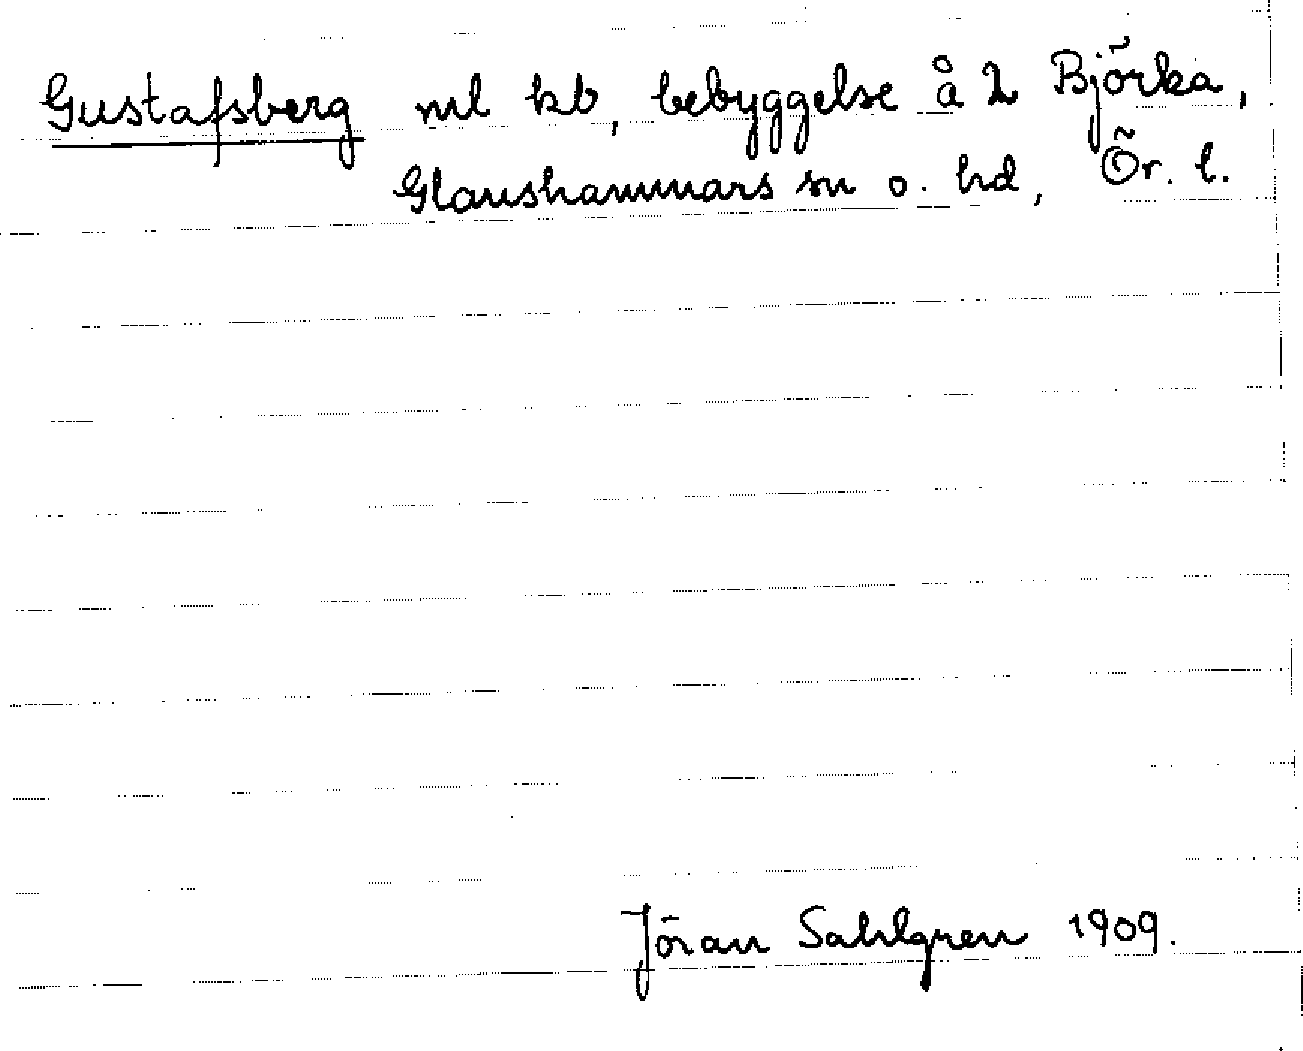 Gustafsberg ml kb, bebyggelse å 2 Björka,
Glanshammars sn o. hd, Ör. l.
Jöran Sahlgren 1909.